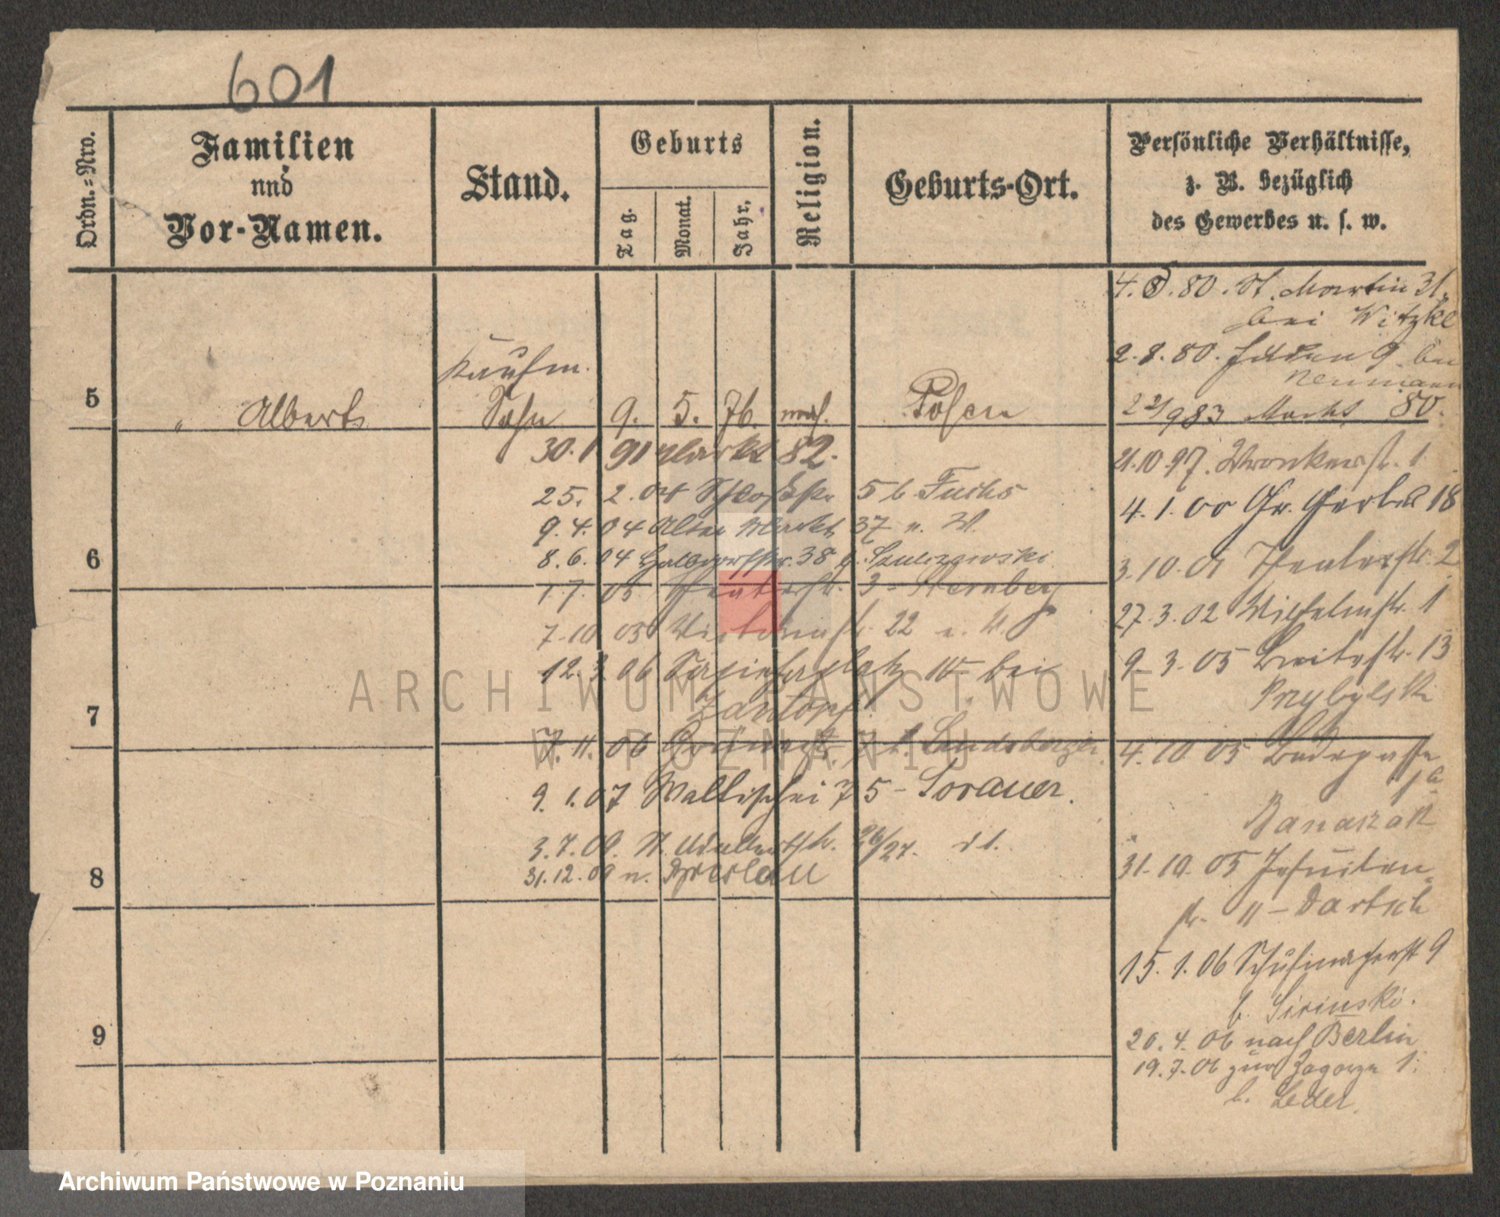 601
Ordn.-Nro.
Familien
und
Vor-Namen.
Stand.
Geburts
Tag.
Monat.
Jahr.
Religion.
Geburts-Ort.
Persönliche Verhältnisse,
z. B. bezüglich
des Gewerbes u. s. w.
4. 8. 80. St. Martin 31.
bei Witzke
2. 8. 80. 9. bei
Neumann
Kaufm.
5 " Albert Sohn 9. 5. 76. mos. Posen
83 Markt 80.
30. 1 91 Markt 82.
21. 10 97. Wronkerstr. 1
25. 2. 04 Schloßstr. 5 b. Fuchs
4. 1. 00 Gr. Gerberstr 18
9. 4. 04 Alter Markt 37 n. W.
6
8. 6. 04 Halbdorfstr. 38 b.
3. 10. 01 Theaterstr. 2
1 7. 05 Theaterstr. 3 - Sternberg
27. 3. 02 Wilhelmstr. 1
7. 10 05 Victoriastr. 22 n. W
12. 3. 06 Sapiehaplatz 10 bei
9 3. 05 Breitestr. 13
Przybylski
7
7. 11. 06 7 b. Landsberger
4. 10 05
9. 1. 07 Wallischei 75 - Sorauer.
Banaszak
3. 7. 09. St. Adalbertstr. 26/27.
31. 10. 05 Jesuiten-
31. 12. 09 n. Breslau
8
str. 11 - Dartsch
15. 1. 06 Schuhmacherstr 9
b. Sirinski.
9
20. 4. 06 nach Berlin
19. 7. 06 zur Zagorze 1.
b. Leder.
ARCHIWUM PAŃSTWOWE
W POZNANIU
Archiwum Państwowe w Poznaniu